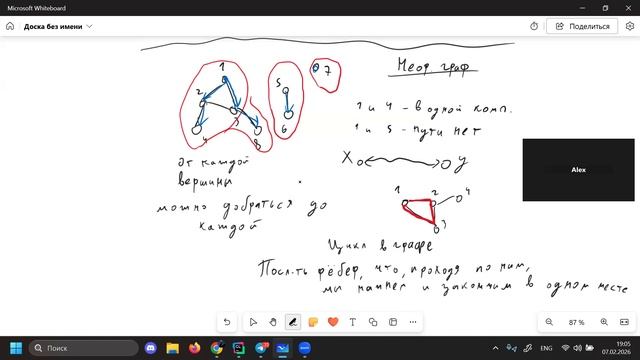 Microsoft Whiteboard
Доска без имени
Поделиться
Неор граф
1
2
3
4
8
5
6
7
1 и 4 - в одной комп.
1 и 5 - пути нет
X
y
От каждой
вершины
можно добраться до
каждой
1
2
4
3
Цикл в графе
Посл-ть рёбер, что, проходя по ним,
мы начнем и закончим в одном месте
Alex
87 %
Поиск
РУС
19:05
07.02.2026